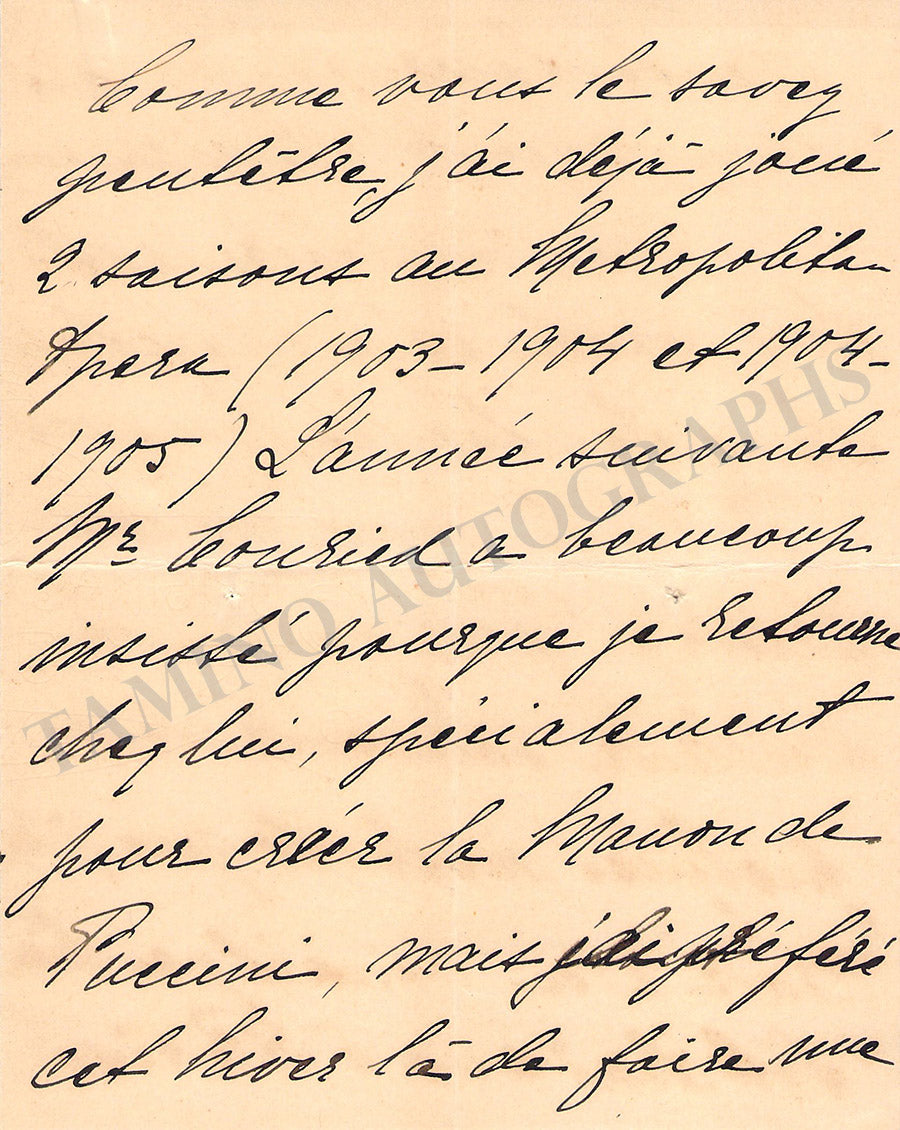 Comme vous le savez
peutêtre, j'ai déjà joué
2 saisons au Metropolitan
Opera (1903-1904 et 1904-
1905) L'année suivante
Mr Conried a beaucoup
insisté pourque je retourne
chez lui, spécialement
pour créer la Manon de
Puccini, mais j'ai préféré
cet hiver là de faire une
TAMINO AUTOGRAPHS